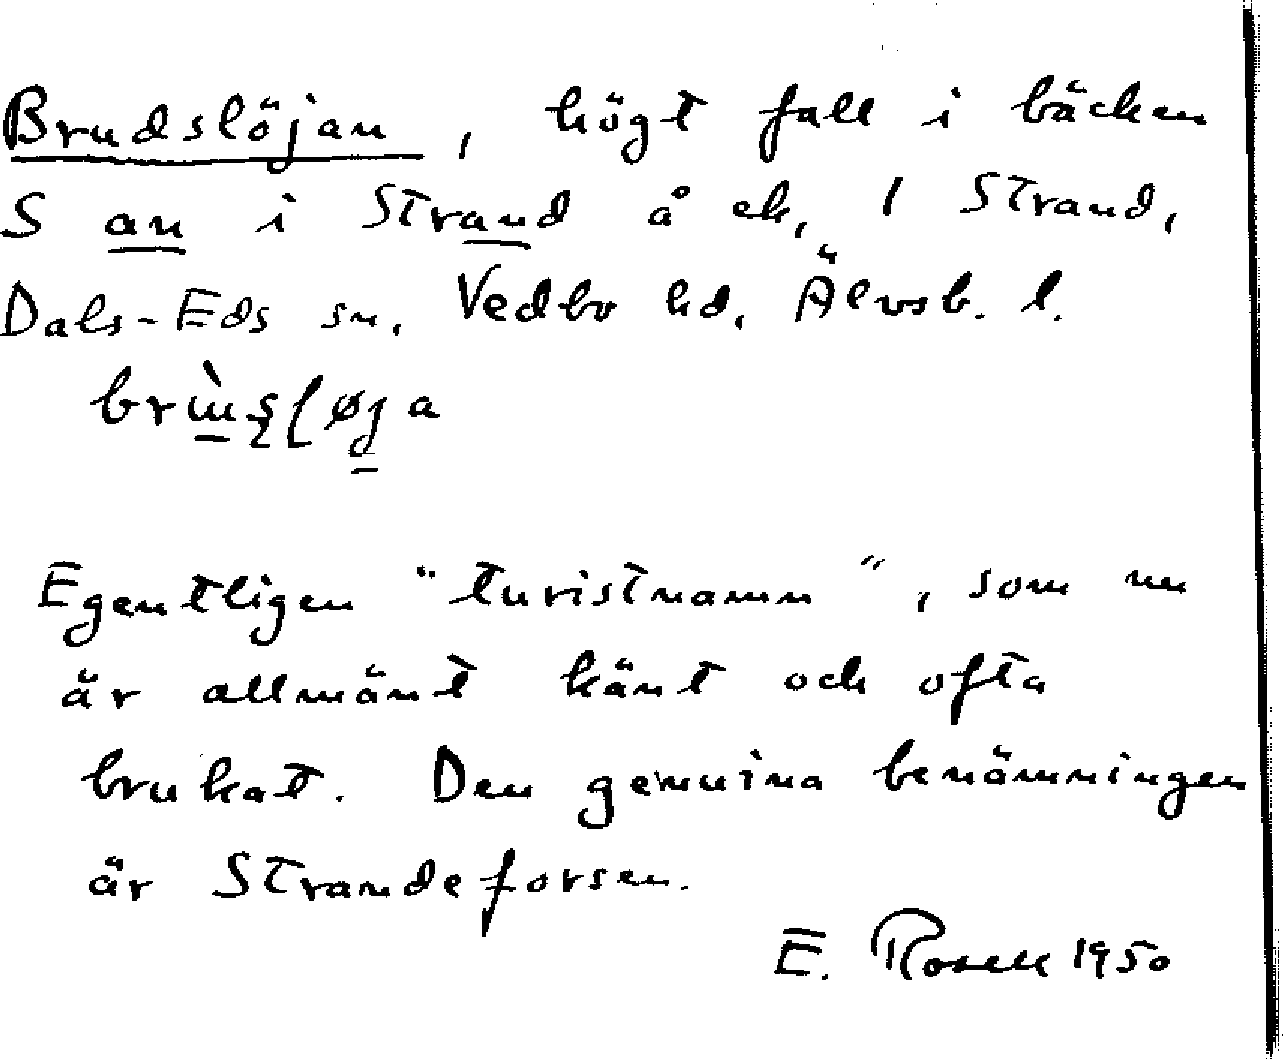 Brudslöjan, högt fall i bäcken
S an i Strand å ek, 1 Strand,
Dals-Eds sn. Vedbo hd. Älvsb. l.
Egentligen "turistnamn", som nu
är allmänt känt och ofta
brukat. Den genuina benämningen
är Strandeforsen.
E. Rosell 1950